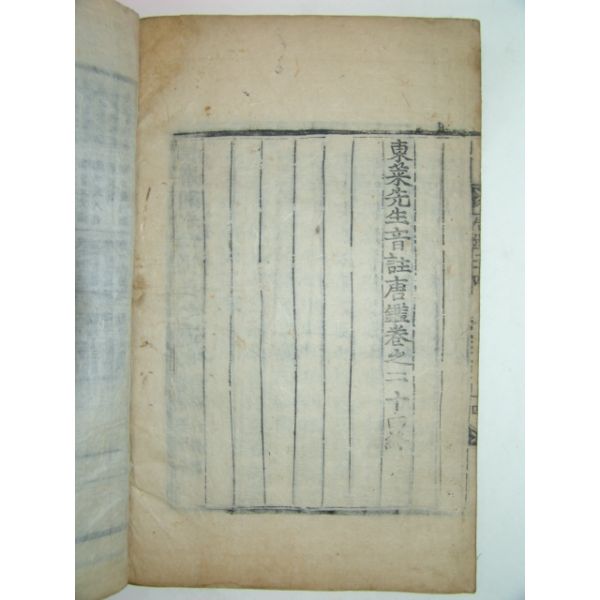 東萊先生音註唐鑑卷之二十四終